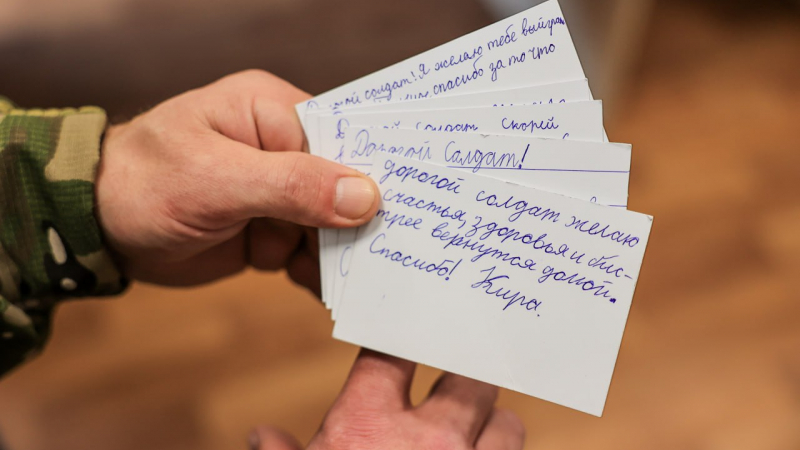 солдат! Я желаю тебе выигра
спасибо за то что
солдат скорей
Дорогой Солдат!
дорогой солдат желаю
счастья, здоровья и быс-
трее вернутся домой.
Спасибо! Кира.